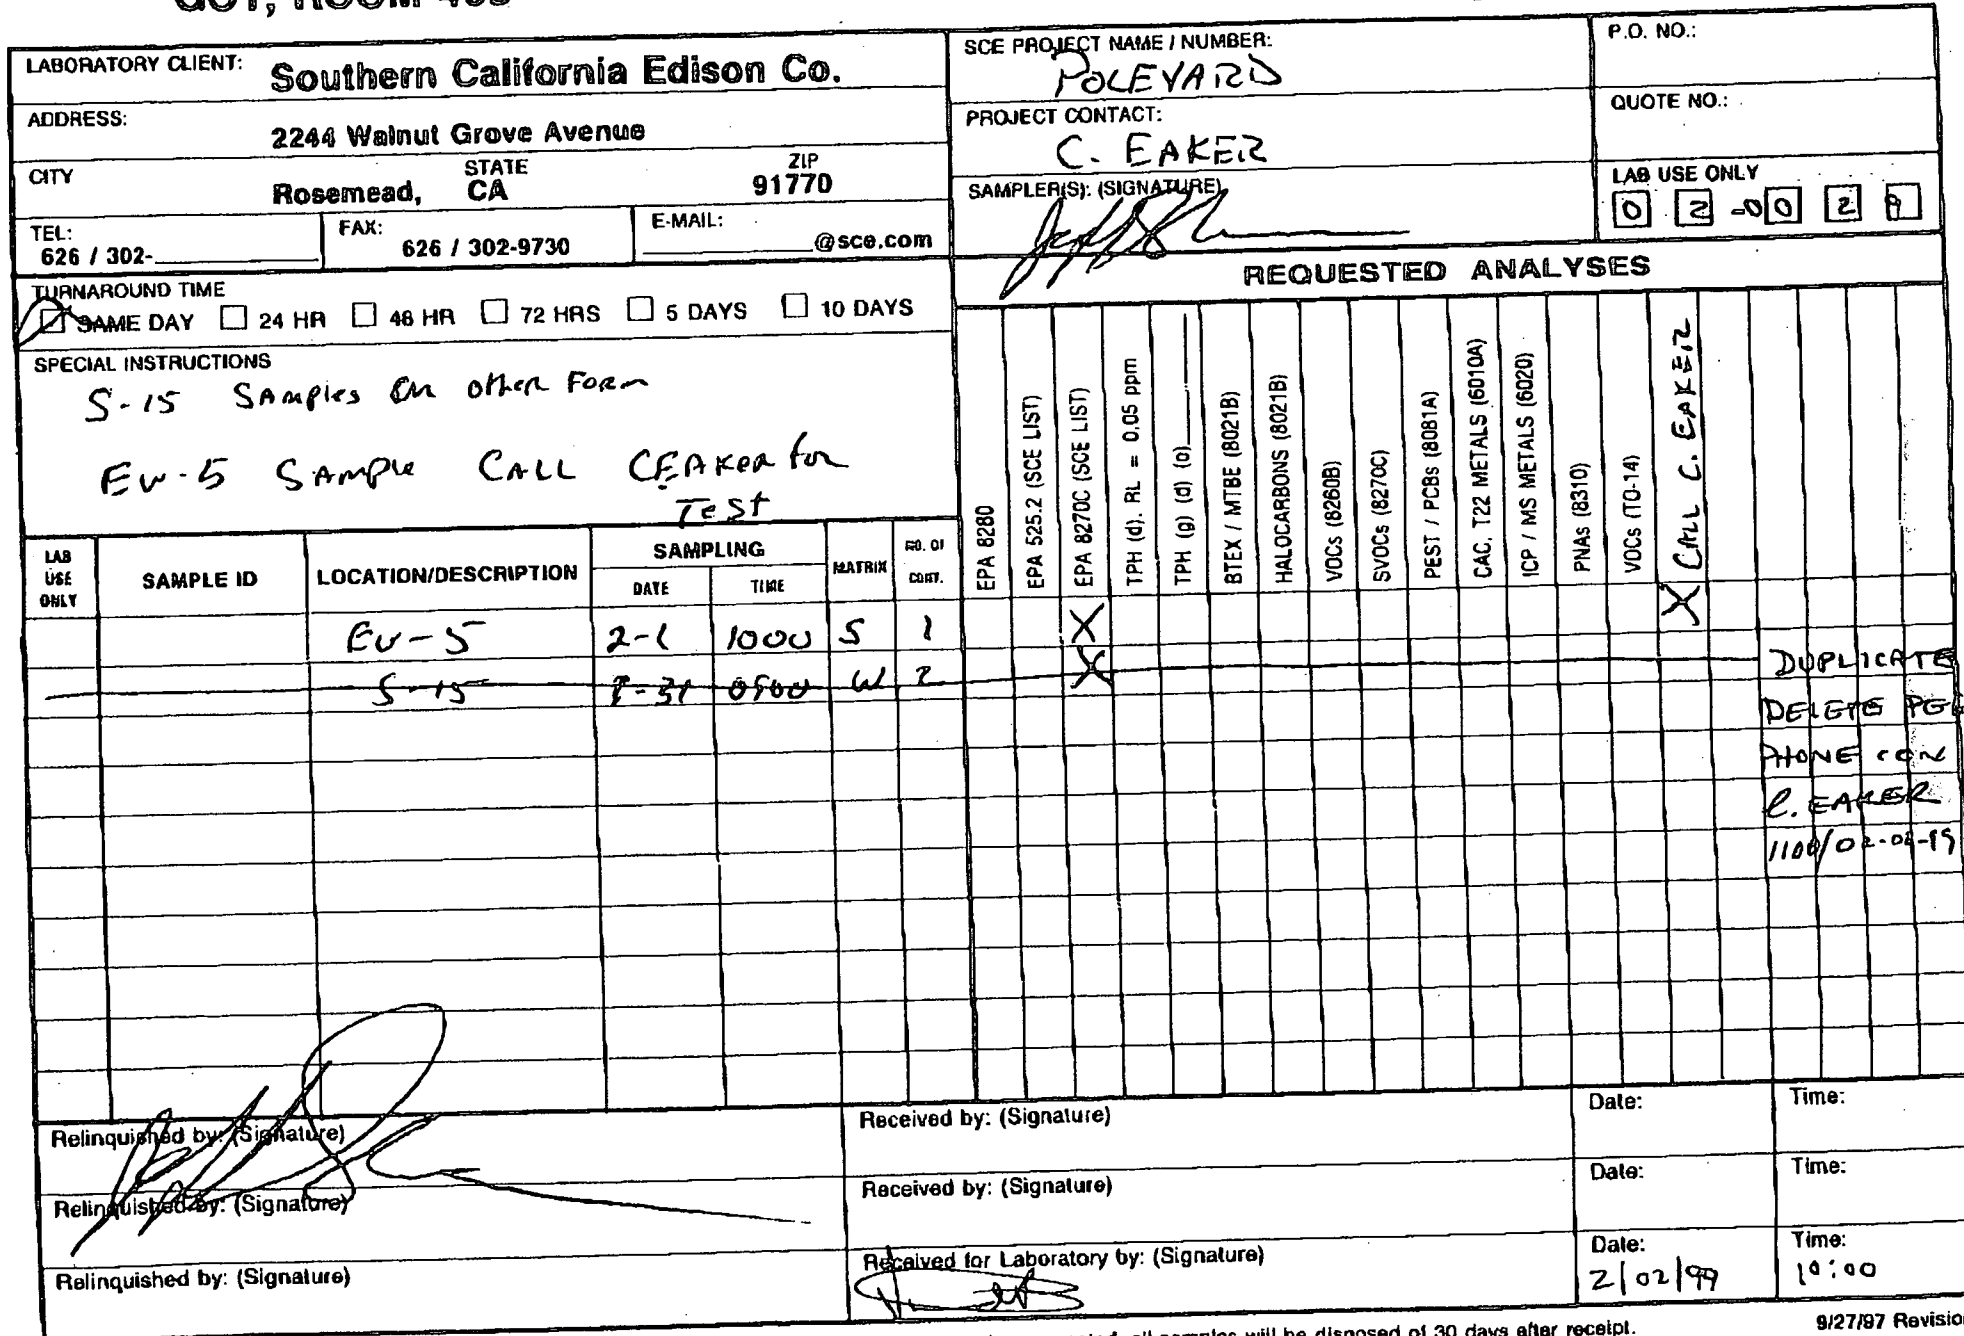 LABORATORY CLIENT: Southern California Edison Co.
ADDRESS:
2244 Walnut Grove Avenue
CITY STATE ZIP
Rosemead, CA 91770
TEL: FAX: E-MAIL:
626 / 302- 626 / 302-9730 @sce.com
SCE PROJECT NAME / NUMBER:
POLEYARD
PROJECT CONTACT:
C. EAKER
SAMPLER(S): (SIGNATURE)
P.O. NO.:
QUOTE NO.:
LAB USE ONLY
0 2 -00 2 9
TURNAROUND TIME
SAME DAY 24 HR 48 HR 72 HRS 5 DAYS 10 DAYS
SPECIAL INSTRUCTIONS
S-15 SAmples On other Form
EW-5 SAmple CALL CEAKER for
Test
REQUESTED ANALYSES
EPA 8280
EPA 525.2 (SCE LIST)
EPA 8270C (SCE LIST)
TPH (d). RL = 0.05 ppm
TPH (g) (d) (o)
BTEX / MTBE (8021B)
HALOCARBONS (8021B)
VOCs (8260B)
SVOCs (8270C)
PEST / PCBs (8081A)
CAC, T22 METALS (6010A)
ICP / MS METALS (6020)
PNAs (8310)
VOCs (TO-14)
CALL C. EAKER
LAB USE ONLY SAMPLE ID LOCATION/DESCRIPTION SAMPLING MATRIX NO. OF CONT.
DATE TIME
EW-5 2-1 1000 S 1 X X
S-15 1-31 0900 W 2 X DUPLICATE
DELETE PER
PHONE CON
C. EAKER
1100/02-02-99
Relinquished by: (Signature) Received by: (Signature) Date: Time:
Relinquished by: (Signature) Received by: (Signature) Date: Time:
Relinquished by: (Signature) Received for Laboratory by: (Signature) Date: Time:
2/02/99 10:00
all samples will be disposed of 30 days after receipt.
9/27/97 Revision